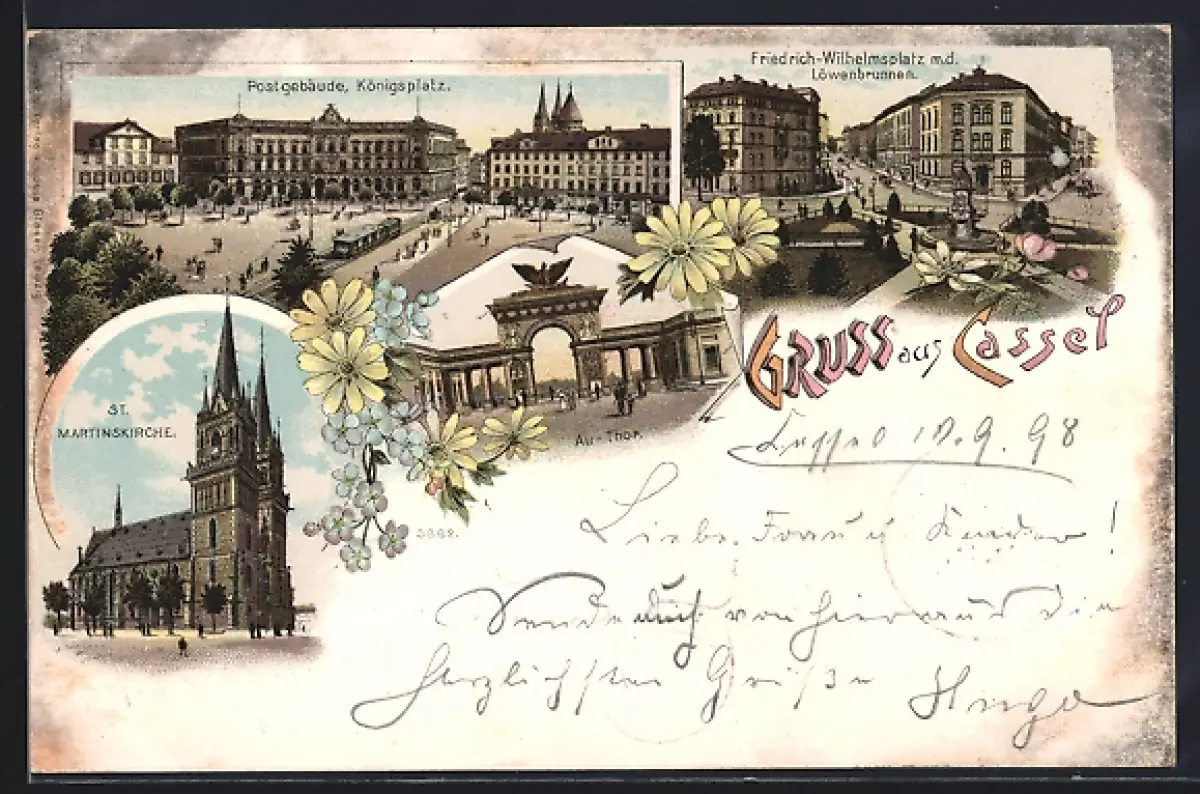 Postgebäude, Königsplatz.
Friedrich-Wilhelmsplatz m.d.
Löwenbrunnen.
ST.
MARTINSKIRCHE.
Au-Thor.
GRUSS aus Cassel
3862.
Cassel 10.9.98
Liebe Frau u Kinder!
Sende auch von hier aus die
herzlichsten Grüße Hugo